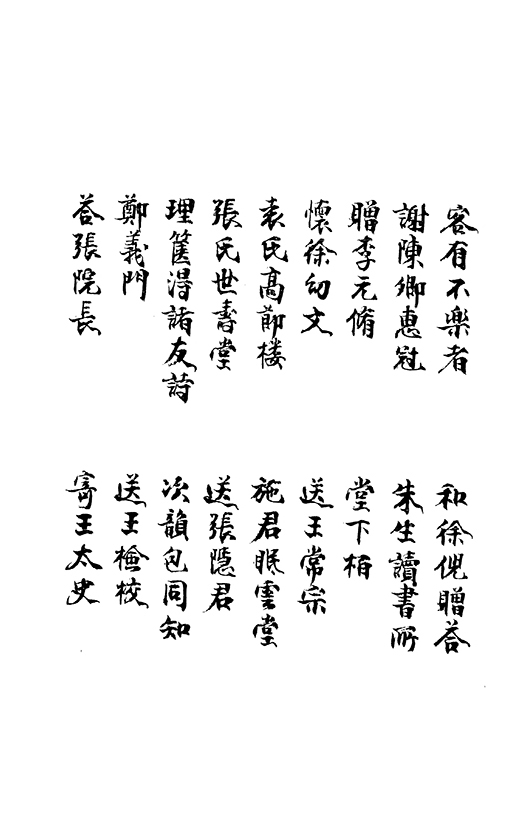 客有不樂者
和徐倪贈荅
謝陳卿惠冠
朱生讀書所
贈李元脩
堂下栢
懷徐幼文
送王常宗
袁氏高節楼
施君眠雲堂
張氏世壽堂
送張隱君
理篋得諸友詩
次韻包同知
鄭義門
送王檢校
荅張院長
寄王太史